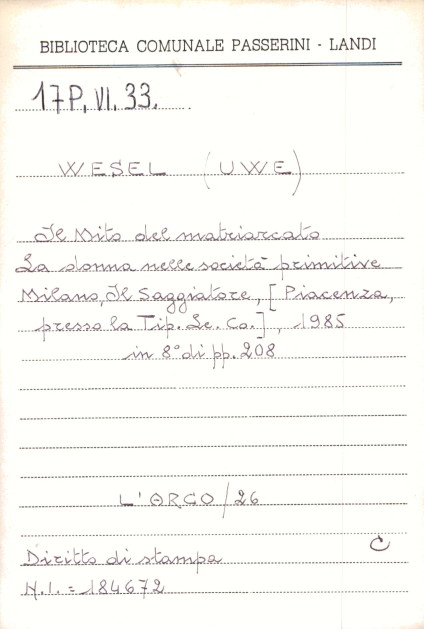 BIBLIOTECA COMUNALE PASSERINI - LANDI
17P.VI.33.
WESEL (UWE)
Il Mito del matriarcato
La donna nelle società primitive
Milano, Il Saggiatore, [Piacenza,
presso la Tip. Le. Co.], 1985
in 8° di pp. 208
L'ARGO/26
C
Diritto di stampa
N.I. = 184672